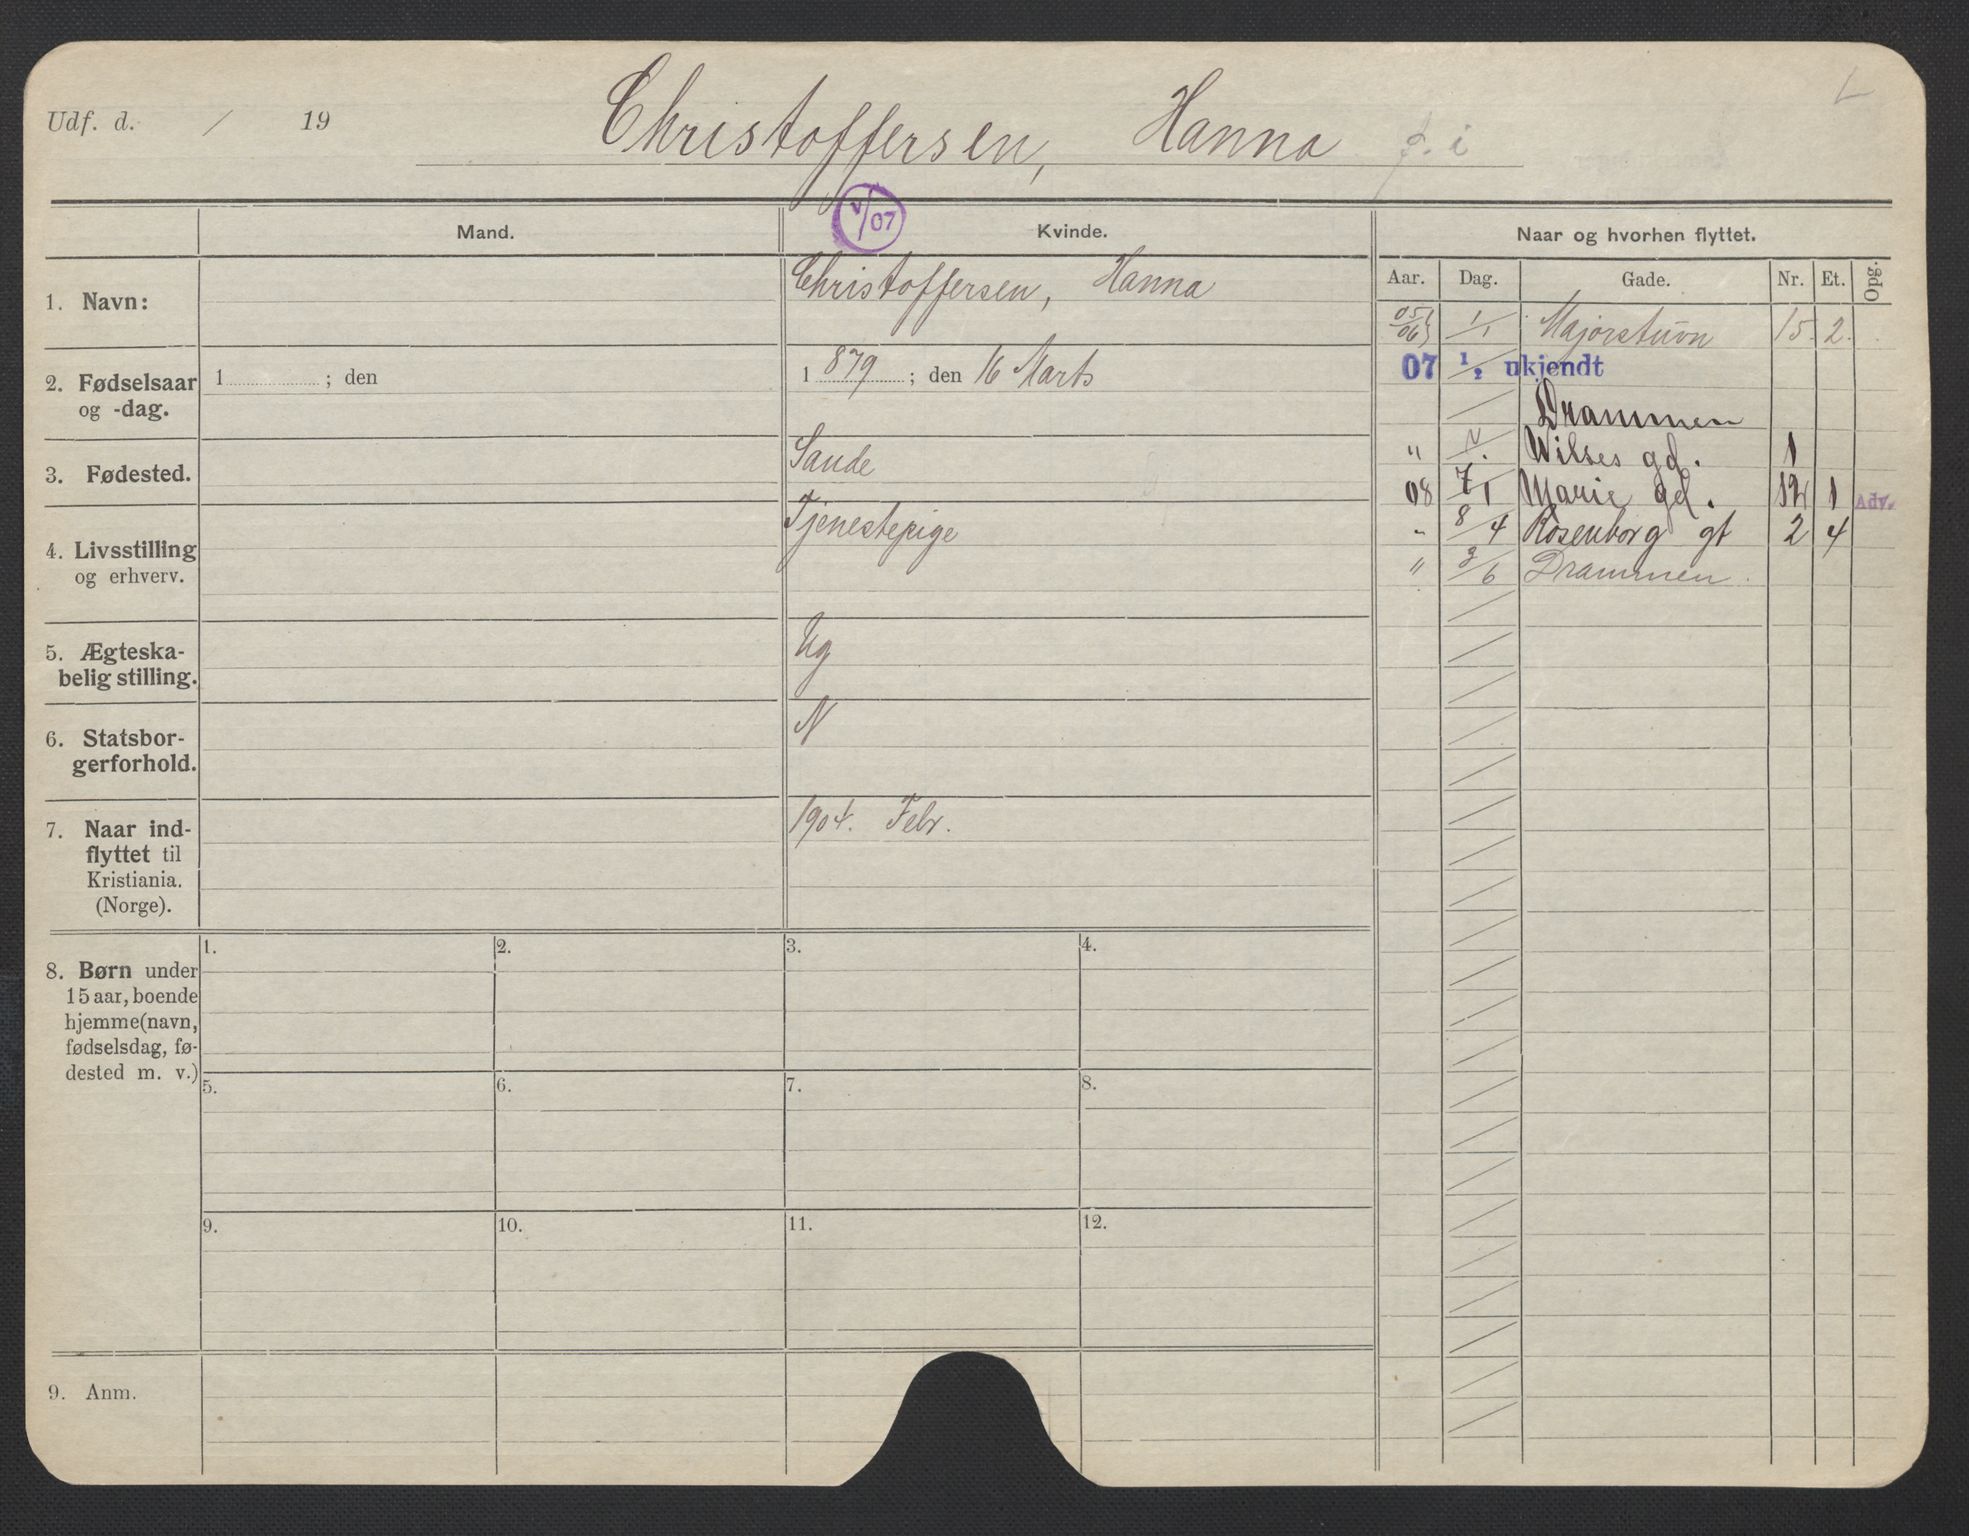 Udf. d. / 19
Christoffersen, Hanna
Mand.
v/07
Kvinde.
Naar og hvorhen flyttet.
Aar. Dag. Gade. Nr. Et. Opg.
1. Navn:
Christoffersen, Hanna
2. Fødselsaar
og -dag.
1 ; den
1 879 ; den 16 Marts
3. Fødested.
Sande
4. Livsstilling
og erhverv.
Tjenestepige
5. Ægteska-
belig stilling.
Ug
6. Statsbor-
gerforhold.
N
7. Naar ind-
flyttet til
Kristiania.
(Norge).
1904. Febr.
8. Børn under
15 aar, boende
hjemme (navn,
fødselsdag, fø-
dested m. v.)
1. 2. 3. 4.
5. 6. 7. 8.
9. 10. 11. 12.
9. Anm.
05/06 1/1 Majorstuvn 15. 2.
07 1/2 ukjendt
Drammen
" Wilses gd. 1
08 7/1 Marie gd. 12 1 Adv.
" 8/4 Rosenborg gt 2 4
" 3/6 Drammen.